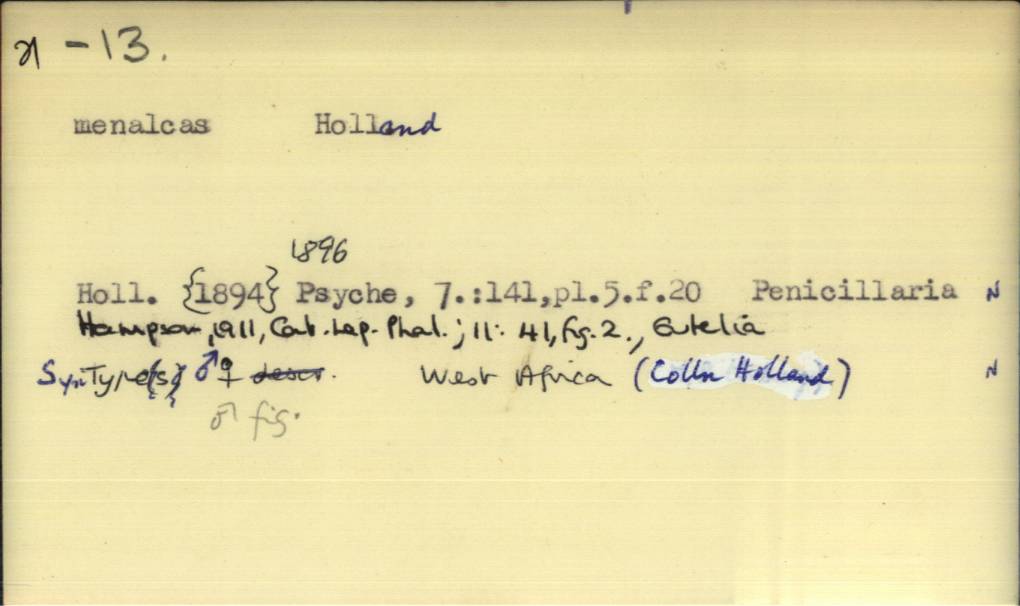 -13.
menalcas Holland
1896
Holl. {1894} Psyche, 7.:141,pl.5.f.20 Penicillaria N
Hampson, 1911, Cat. Lep. Phal.; 11: 41, fig. 2., Eutelia
SynType{s} ♂ ♀ descr. West Africa (Colln Holland) N
♂ fig.